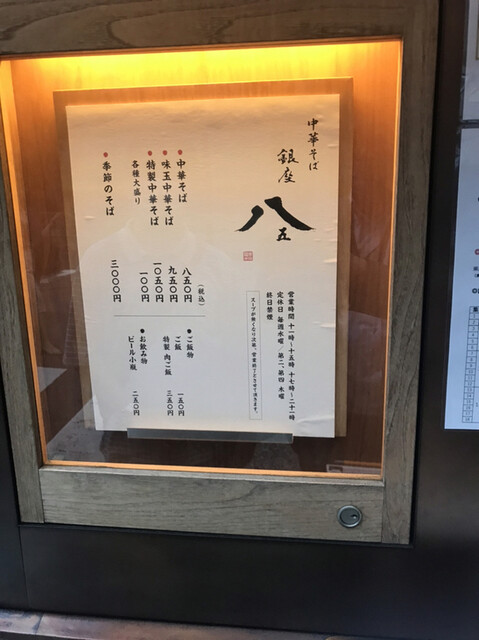 中華そば
銀座
八五
営業時間 十一時～十五時 十七時～二十一時
定休日 毎週水曜 第二、第四 木曜
終日禁煙
スープが無くなり次第、営業終了とさせて頂きます。
(税込)
●中華そば 八五〇円
●味玉中華そば 九五〇円
●特製中華そば 一〇五〇円
各種大盛り 一〇〇円
●季節のそば 三〇〇〇円
●ご飯物
ご飯 一五〇円
特製 肉ご飯 三五〇円
●お飲み物
ビール小瓶 二五〇円